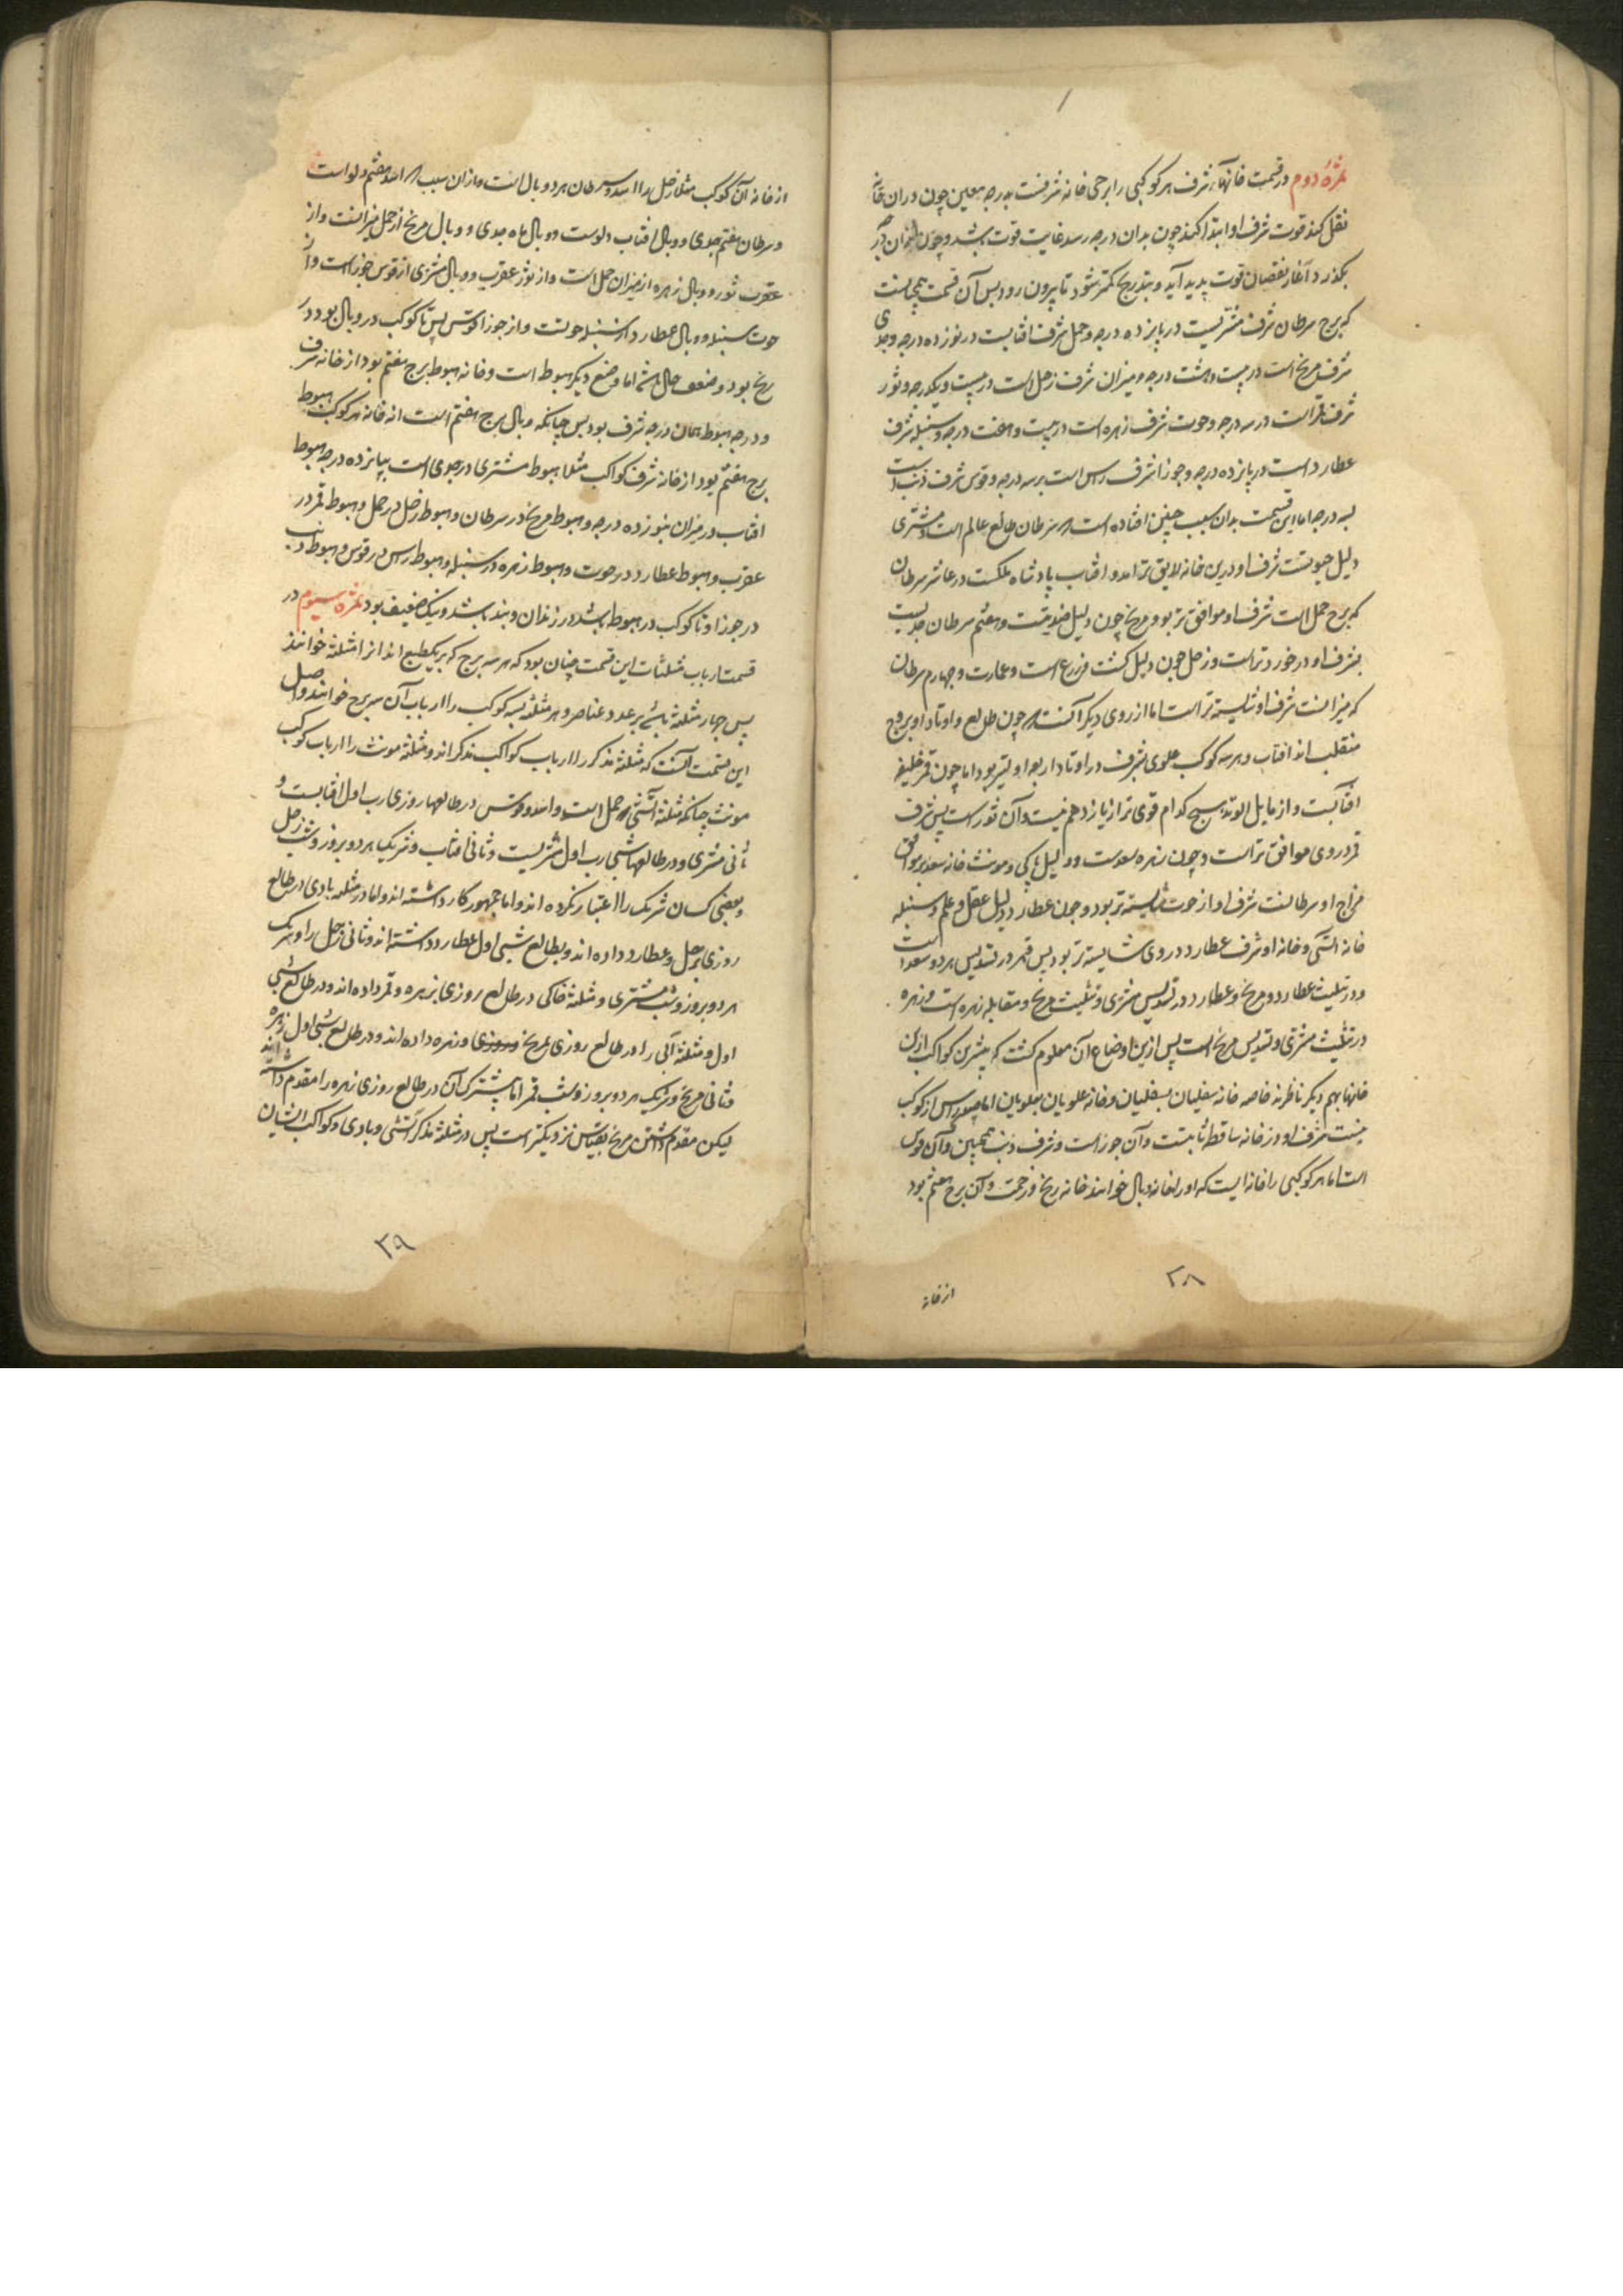 ثمرهٔ دوم در قسمت خانهاء شرف هر کوکبی را برجی خانه شرفست بدرجه معین چون دران خانه
نقل کند قوت شرف او ابتدا کند چون بدان درجه رسد غایت قوت باشد و چون ازان درجه
بگذرد آغاز نقصان قوت پدید آید و بتدریج کمتر شود تا بیرون رود پس آن قسمت همچنانست
که برج سرطان شرف مشتریست در پانزده درجه و حمل شرف افتابست در نوزده درجه و جدی
شرف مریخ است در بیست و هشت درجه و میزان شرف زحل است در بیست و یکدرجه و ثور
شرف قمر است در سه درجه و حوت شرف زهره است در بیست و هفت درجه و سنبله شرف
عطارد است در پانزده درجه و جوزا شرف راس است بر سه درجه و قوس شرف ذنب است
بسه درجه اما این قسمت بدان سبب چنین افتاده است که سرطان طالع عالم است و مشتری
دلیل حیوتست شرف او درین خانه لایق تر امد و افتاب پادشاه ملکست در عاشر سرطان
که برج حمل است شرف او موافق تر بود و مریخ چون دلیل ضدیتست و هفتم سرطان جدیست
بشرف او در خورد تر است و زحل چون دلیل کشت و زرع است و عمارت و چهارم سرطان
که میزانست شرف او شایسته تر است اما از روی دیگر آنست که چون طالع و اوتاد او بروج
منقلب اند افتاب و هر سه کوکب علوی بشرف در اوتاد اربعه اولیتر بود اما چون قمر خلیفه
افتابست و از مایل الوتد هیچ کدام قوی تر از یازدهم نیست و آن ثور است پس شرف
قمر در وی موافق تر است و چون زهره سعدست و دلیل پاکی و مونث خانه سعد بر وفق
مزاج او سرطانست شرف او از حوت شایسته تر بود و چون عطارد دلیل عقل و علم و سنبله
خانه انسی و خانه او شرف عطارد در وی شایسته تر بود پس قمر در تسدیس هر دو سعد است
و در تثلیث عطارد و مریخ و عطارد در تسدیس مشتری و تثلیث مریخ و مقابله زهره است و زهره
در تثلیث مشتری و تسدیس مریخ است پس ازین اوضاع آن معلوم گشت که بیشترین کواکب ازین
خانها بهم دیگر ناظرند خاصه خانه سفلیان بسفلیان و خانه علویان بعلویان اما چون راس از کوکب
نیست شرف او در خانه ساقط ثابتست و آن جوز است و شرف ذنب همچنین و آن قوس
است اما هر کوکبی را خانه ایست که او را خانه وبال خوانند خانه رنج و زحمت و آن برج هفتم بود
از خانه
۲۸
از خانه آن کوکب مثلا زحل را اسد و سرطان هر دو وبال است و ازان سبب که اسد هفتم دلو است
و سرطان هفتم جدی و وبال افتاب دلوست و وبال ماه جدی و وبال مریخ از حمل میزانست و از
عقرب ثور و وبال زهره از میزان حمل است و از ثور عقرب و وبال مشتری از قوس جوز است و از
حوت سنبله و وبال عطارد از سنبله حوتست و از جوزا قوس پس تا کوکب در وبال بود در
رنج بود و ضعف حال باشد اما وضع دیگر هبوط است و خانه هبوط برج هفتم بود از خانه شرف
و درجه هبوط همان درجه شرف بود پس چنانکه وبال برج هفتم است از خانه هر کوکب هبوط
برج هفتم بود از خانه شرف کواکب مثلا هبوط مشتری در جدی است بپانزده درجه هبوط
افتاب در میزان بنوزده درجه و هبوط مریخ در سرطان و هبوط زحل در حمل و هبوط قمر در
عقرب و هبوط عطارد در حوت و هبوط زهره در سنبله و هبوط راس در قوس و هبوط ذنب
در جوزا و تا کوکب در هبوط باشد در زندان و بند باشد و نیک ضعیف بود ثمره سیوم در
قسمت ارباب مثلثات این قسمت چنان بود که هر سه برج که بریکطبع اند انرا مثلثه خوانند
پس چهار مثلثه باشد بر عدد عناصر و هر مثلثه بسه کوکب را ارباب آن سه برج خوانند و اصل
این قسمت آنست که مثلثه مذکر را ارباب کواکب مذکر اند و مثلثه مونث را ارباب کوکب
مونث چنانکه مثلثه آتشی که حمل است و اسد و قوس در طالعها روزی رب اول افتابست و
ثانی مشتری و در طالعها شبی رب اول مشتریست و ثانی افتاب و شریک هر دو بروز و شب زحل
و بعضی کسان شریک را اعتبار نکرده اند و اما جمهور کار داشته اند و اما در مثلثه بادی در طالع
روزی بزحل و عطارد داده اند و بطالع شبی اول عطارد داشته اند و ثانی زحل را و شریک
هر دو بروز و شب مشتری و مثلثه خاکی در طالع روزی بزهره و قمر داده اند و در طالع شبی
اول و مثلثه آبی را در طالع روزی بمریخ و زهره داده اند و در طالع شبی اول زهره
و ثانی مریخ و شریک هر دو بروز و شب قمر اما بیشترک آن در طالع روزی زهره را مقدم داشته اند
لیکن مقدم داشتن مریخ بقیاس نزدیکتر است پس در مثلثه مذکر آتشی و بادی و کواکب ایشان
۲۹